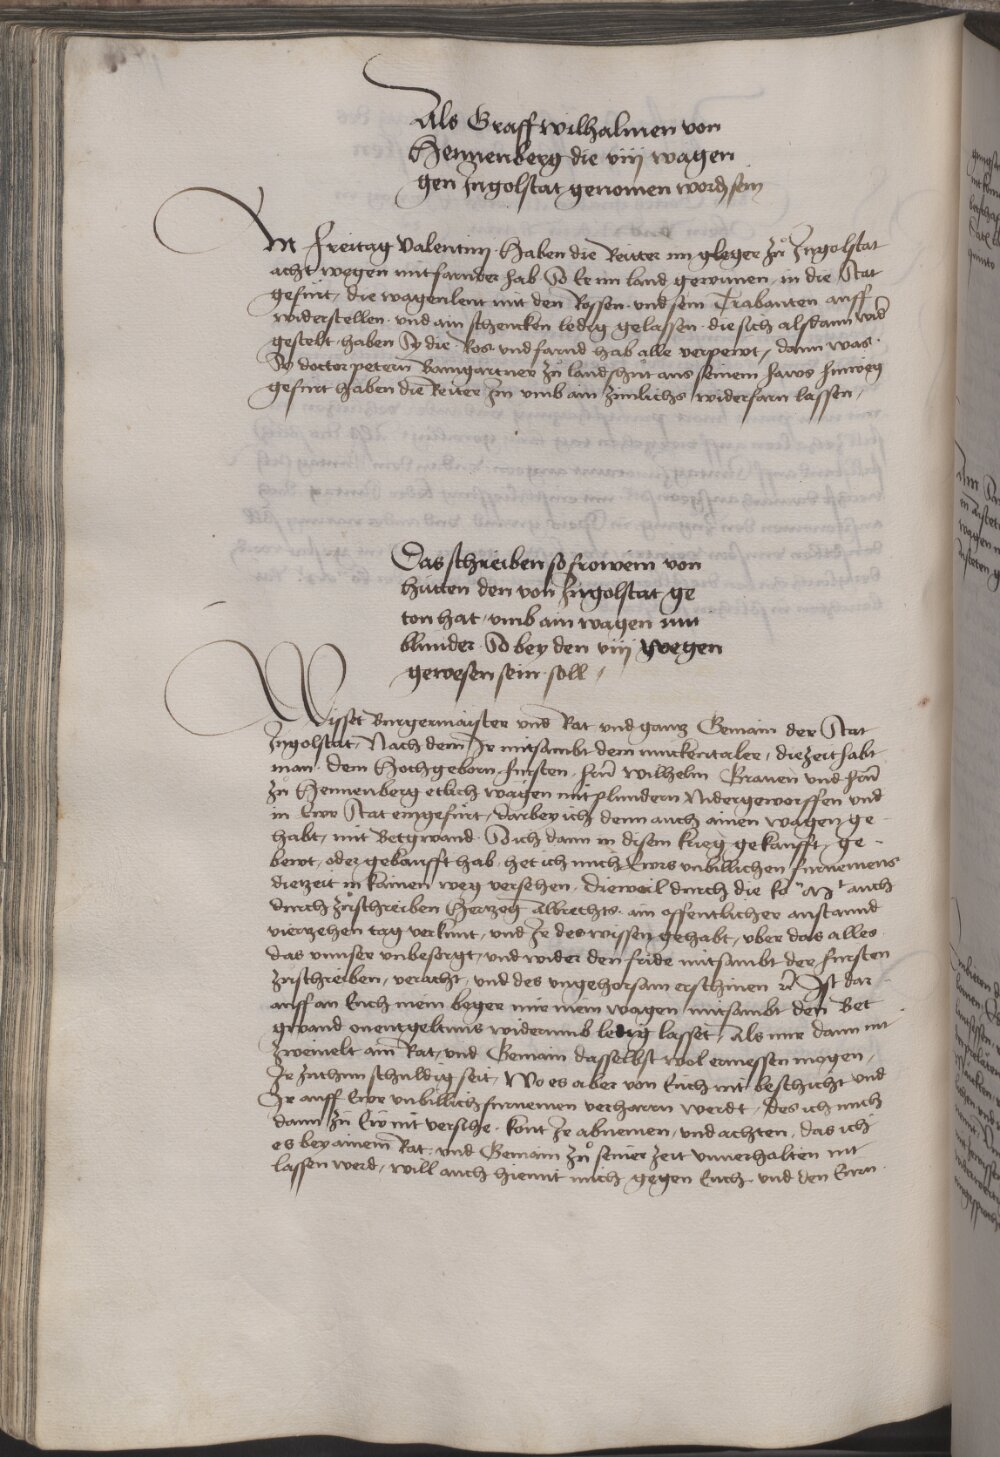 Als Graff wilhalmen von
Hennenberg die viij wagen
gen Ingolstat genomen word sein
Am freitag Valentinj haben die Reitter im gleger zů Ingolstat
acht wegen mit farnder hab So Er im land gewunen in die Stat
gefürt, die wagenleut mit den Rossen und sein Trabanten auff
widerstellen und ain schencken ledig gelassen die sich alsdann wid
gestelt haben Sy die Ros und farnd hab alle verpewt, dann was
So doctor petern Bamgartner zů landshut aus seinem haws hinweg
gefürt haben die Reiter Im umb ain zimlichs widerfarn lassen,
Das schreiben so frowein von
hutten den von Ingolstat ge
ton hat umb ain wagen mit
blunder So bey den viij wegen
gewesen sein soll,
Wisset Burgermaister und Rat und gantz Gemain der Stat
Ingolstat, Nach dem Ir mitsambt dem muckentaler, die zeit habt
man dem Hochgeborn fursten hern wilhelm Graven und hern
zu Hennenberg etlich wagen mit plundern Nidergeworffen und
in Ewr Stat eingefürt, darbey ich denn auch ainen wagen ge
habt, mit Betgwand So ich dann in disem krieg gekaufft, ge
bewt, oder gekaufft hab, het ich mich Ewrs unbillichen furnemens
die zeit in kainen weg versehen, dieweil durch die ko Mt auch
durch zuschreiben Hertzog Albrechts ain offentlicher anstannd
viertzehen tag verkunt, und Ir des wissen gehabt, uber das alles
das unnser unbesorgt, und wider den fride mitsambt der fursten
zuschreiben, veracht, und des ungehorsam erschinen Ist dar
auff an Euch mein beger mir mein wagen mitsambt den Bet
gwand onentgeltnus widerumb ledig lasset, Als mir dann nit
zweivelt ain Rat, und Gemain dasselbst wol ermessen mogen,
Ir zuthun schuldig seit, Wo es aber von Euch nit beschicht und
Ir auff Ewr unbillich furnemen verharrn werdt, des ich mich
dann zu Ew nit versihe, kont Ir abnemen, und achten, das ich
es bey ainem Rat, und Gemain zů seiner zeit unnerhalten nit
lassen werd, will auch hiemit mich gegen Euch und den Ewrn